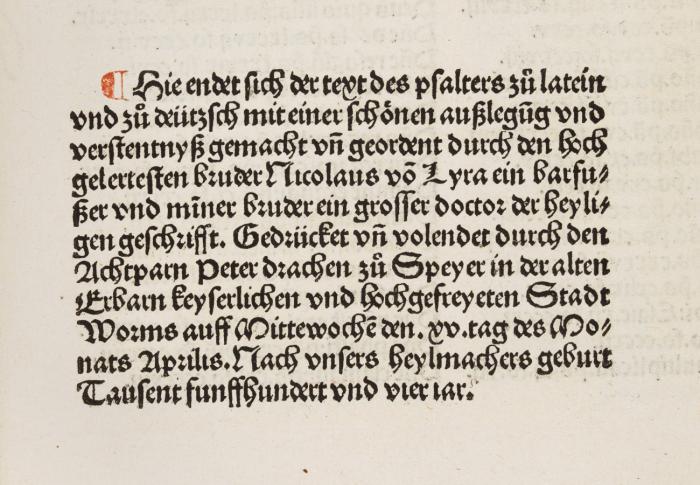 ¶ Hie endet sich der text des psalters zů latein
vnd zů deützsch mit einer schönen außlegūg vnd
verstentnyß gemacht vñ geordent durch den hoch
gelertesten bruder Nicolaus võ Lyra ein barfu⸗
ßer vnd m̄iner bruder ein grosser doctor der heyli⸗
gen geschrifft. Gedrücket vñ volendet durch den
Achtparn Peter drachen zů Speyer in der alten
Erbarn keyserlichen vnd hochgefreyeten Stadt
Worms auff Mittewochē den. xv. tag des Mo⸗
nats Aprilis. Nach vnsers heylmachers geburt
Tausent funffhundert vnd vier iar.